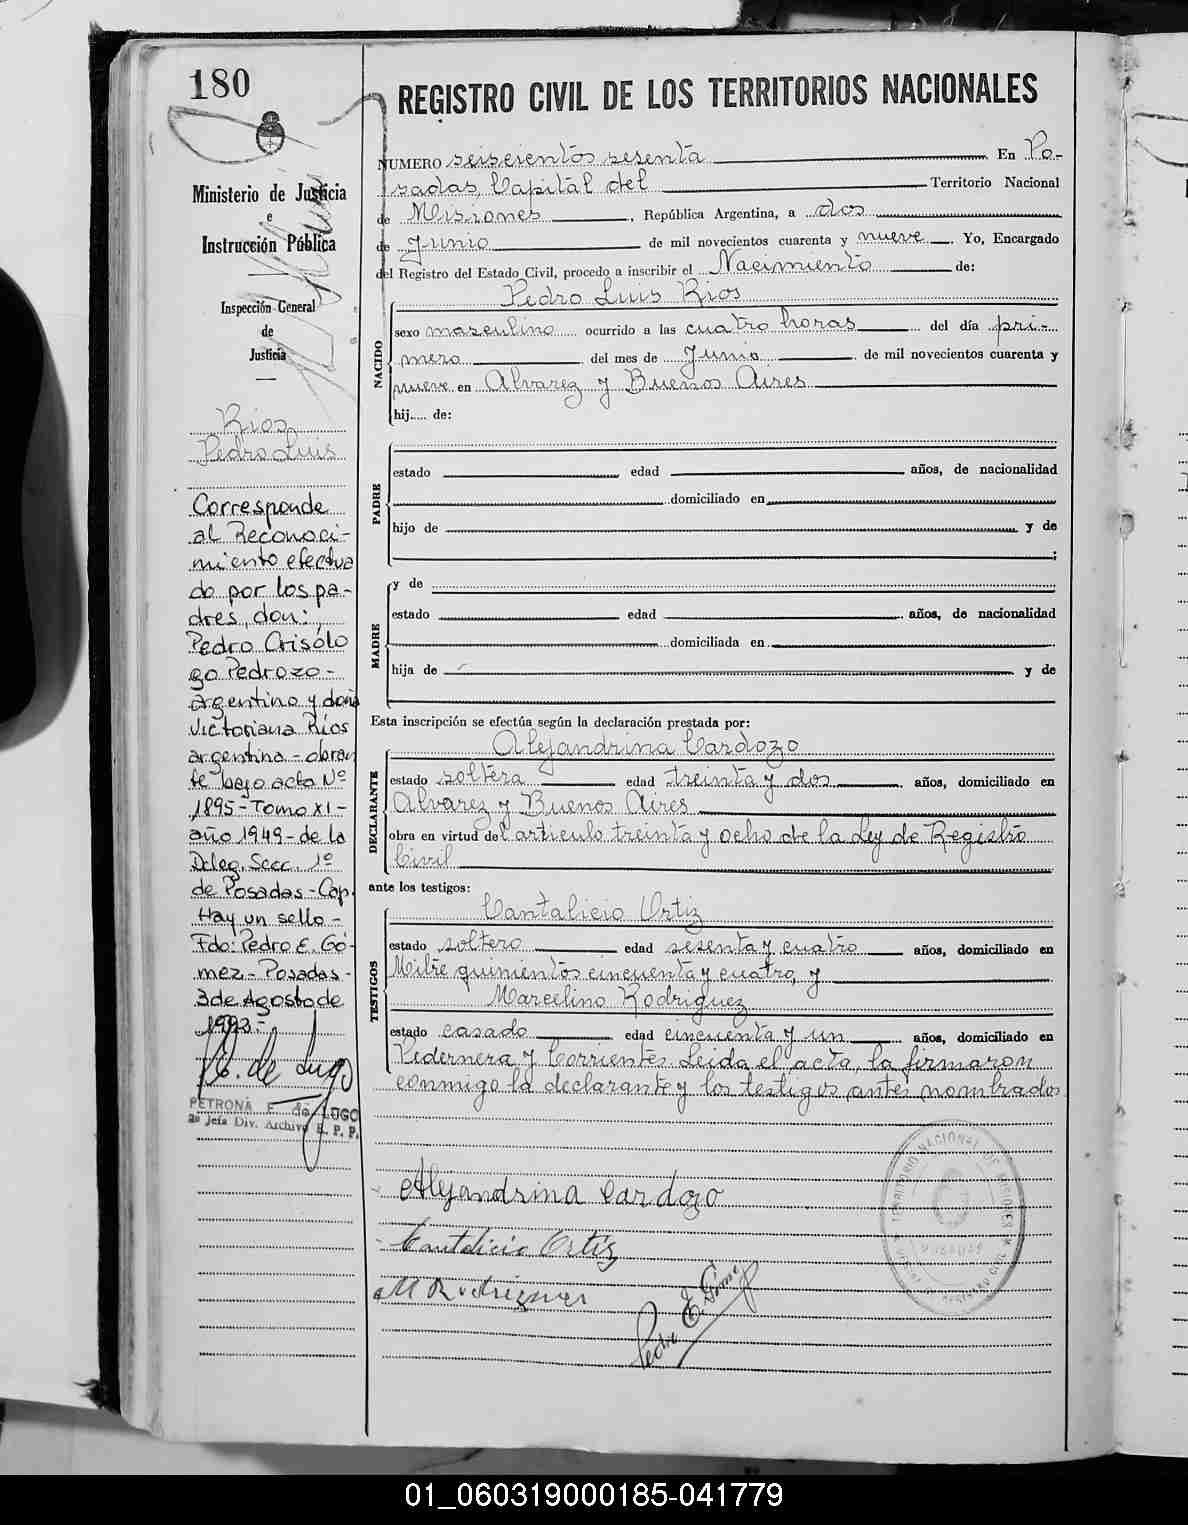 180
REGISTRO CIVIL DE LOS TERRITORIOS NACIONALES
Ministerio de Justicia
e
Instrucción Pública
Inspección General
de
Justicia
Rios
Pedro Luis
Corresponde
al Reconoci-
miento efectua
do por los pa-
dres, don:
Pedro Crisólo
go Pedrozo -
argentino y doña
Victoriana Ríos
argentina - obran
te bajo acta Nº
1895 - Tomo XI -
año 1949 - de la
Deleg. Secc. 1º
de Posadas - Cap.
Hay un sello -
Fdo: Pedro E. Gó-
mez - Posadas -
3 de Agosto de
1993 -
de Lugo
PETRONA F. de LUGO
2º Jefa Div. Archivo R. P. P.
NUMERO seiscientos sesenta En Po-
sadas, Capital del Territorio Nacional
de Misiones, República Argentina, a dos
de Junio de mil novecientos cuarenta y nueve. Yo, Encargado
del Registro del Estado Civil, procedo a inscribir el Nacimiento de:
Pedro Luis Rios
NACIDO
sexo masculino ocurrido a las cuatro horas del día pri-
mero del mes de Junio de mil novecientos cuarenta y
nueve en Alvarez y Buenos Aires
hij.... de:
PADRE
estado edad años, de nacionalidad
domiciliado en
hijo de y de
;
MADRE
y de
estado edad años, de nacionalidad
domiciliada en
hija de y de
Esta inscripción se efectúa según la declaración prestada por:
Alejandrina Cardozo
DECLARANTE
estado soltera edad treinta y dos años, domiciliado en
Alvarez y Buenos Aires
obra en virtud del artículo treinta y ocho de la Ley de Registro
Civil
ante los testigos:
Cantalicio Ortiz
TESTIGOS
estado soltero edad sesenta y cuatro años, domiciliado en
Mitre quinientos cincuenta y cuatro, y
Marcelino Rodriguez
estado casado edad cincuenta y un años, domiciliado en
Pedernera y Corrientes. Leida el acta, la firmaron
conmigo la declarante y los testigos antes nombrados
Alejandrina Cardozo
Cantalicio Ortiz
M Rodriguez
Pedro E. Gómez
TERRITORIO NACIONAL DE MISIONES
POSADAS
REGISTRO CIVIL
01_060319000185-041779